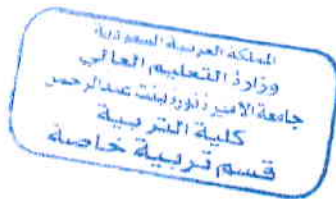 المملكة العربية السعودية
وزارة التعليم العالي
جامعة الأميرة نورة بنت عبدالرحمن
كلية التربية
قسم تربية خاصة